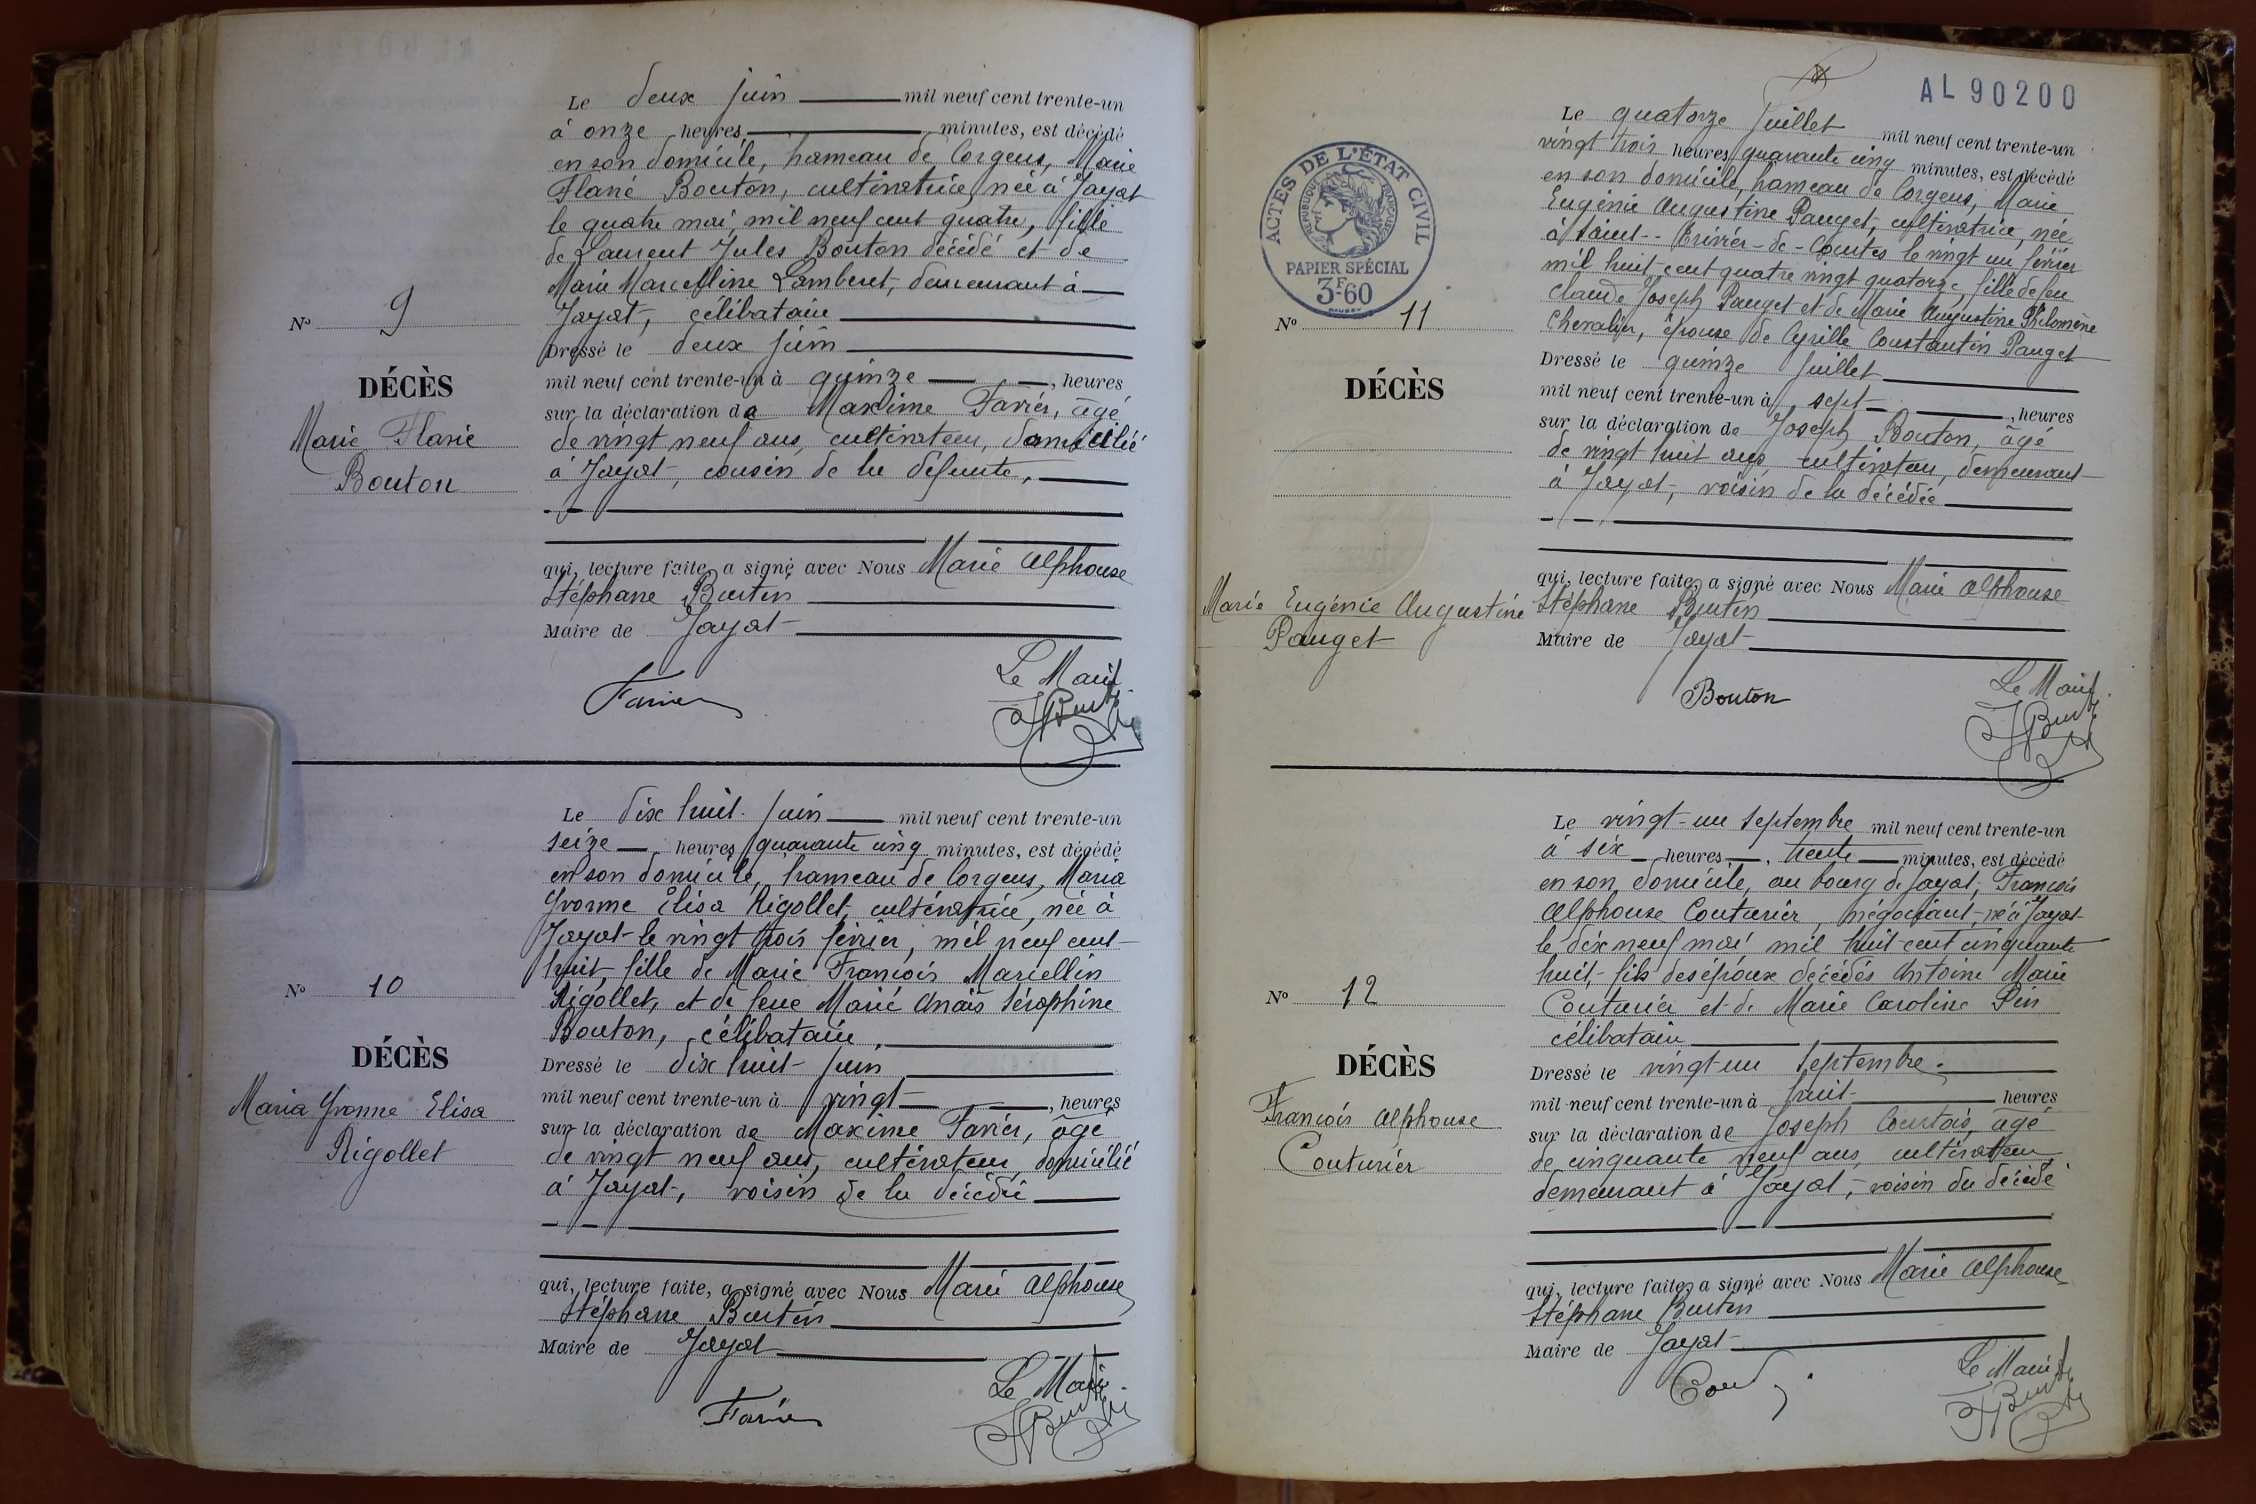 Le deux juin mil neuf cent trente-un
à onze heures, minutes, est décédé
en son domicile, hameau de Corgeus, Marie
Flavie Bouton, cultivatrice, née à Jayat
le quatre mai, mil neuf cent quatre, fille
de Laurent Jules Bouton décédé et de
Marie Marcelline Lamberet, demeurant à
Jayat, célibataire
Dressé le deux juin
mil neuf cent trente-un à quinze, heures
sur la déclaration de Maxime Favier, âgé
de vingt neuf ans, cultivateur, domicilié
à Jayat, cousin de la défunte,
qui, lecture faite, a signé avec Nous Marie Alphonse
Stéphane Burtin
Maire de Jayat
Le Maire
Favier
N° 9
DÉCÈS
Marie Flavie
Bouton
Le dix huit juin mil neuf cent trente-un
seize heures quarante cinq minutes, est décédé
en son domicile, hameau de Corgeus, Maria
Yvonne Elisa Rigollet, cultivatrice, née à
Jayat le vingt trois février, mil neuf cent
huit, fille de Marie François Marcellin
Rigollet, et de feue Marie Anaïs Séraphine
Bouton, célibataire,
Dressé le dix huit juin
mil neuf cent trente-un à vingt, heures
sur la déclaration de Maxime Favier, âgé
de vingt neuf ans, cultivateur, domicilié
à Jayat, voisin de la décédée
qui, lecture faite, a signé avec Nous Marie Alphonse
Stéphane Burtin
Maire de Jayat
Le Maire
Favier
N° 10
DÉCÈS
Maria Yvonne Elisa
Rigollet
AL 90200
ACTES DE L'ÉTAT CIVIL
RÉPUBLIQUE FRANÇAISE
PAPIER SPÉCIAL
3F60
Le quatorze Juillet mil neuf cent trente-un
vingt trois heures quarante cinq minutes, est décédé
en son domicile, hameau de Corgeus, Marie
Eugénie Augustine Pauget, cultivatrice, née
à Saint-Trivier-de-Courtes le vingt un février
mil huit cent quatre vingt quatorze, fille de feu
Claude Joseph Pauget et de Marie Augustine Philomène
Chevalier, épouse de Cyrille Constantin Pauget
Dressé le quinze Juillet
mil neuf cent trente-un à sept, heures
sur la déclaration de Joseph Bouton, âgé
de vingt huit ans, cultivateur, demeurant
à Jayat, voisin de la décédée
qui, lecture faite, a signé avec Nous Marie Alphonse
Stéphane Burtin
Maire de Jayat
Le Maire
Bouton
N° 11
DÉCÈS
Marie Eugénie Augustine
Pauget
Le vingt-un Septembre mil neuf cent trente-un
à six heures, trente minutes, est décédé
en son domicile, au bourg de Jayat, François
Alphonse Couturier, négociant, né à Jayat
le dix neuf mai mil huit cent cinquante
huit, fils des époux décédés Antoine Marie
Couturier et de Marie Caroline Pin
célibataire
Dressé le vingt un Septembre.
mil neuf cent trente-un à huit heures
sur la déclaration de Joseph Courtois, âgé
de cinquante neuf ans, cultivateur,
demeurant à Jayat, voisin du décédé
qui, lecture faite, a signé avec Nous Marie Alphonse
Stéphane Burtin
Maire de Jayat
Le Maire
N° 12
DÉCÈS
François Alphonse
Couturier